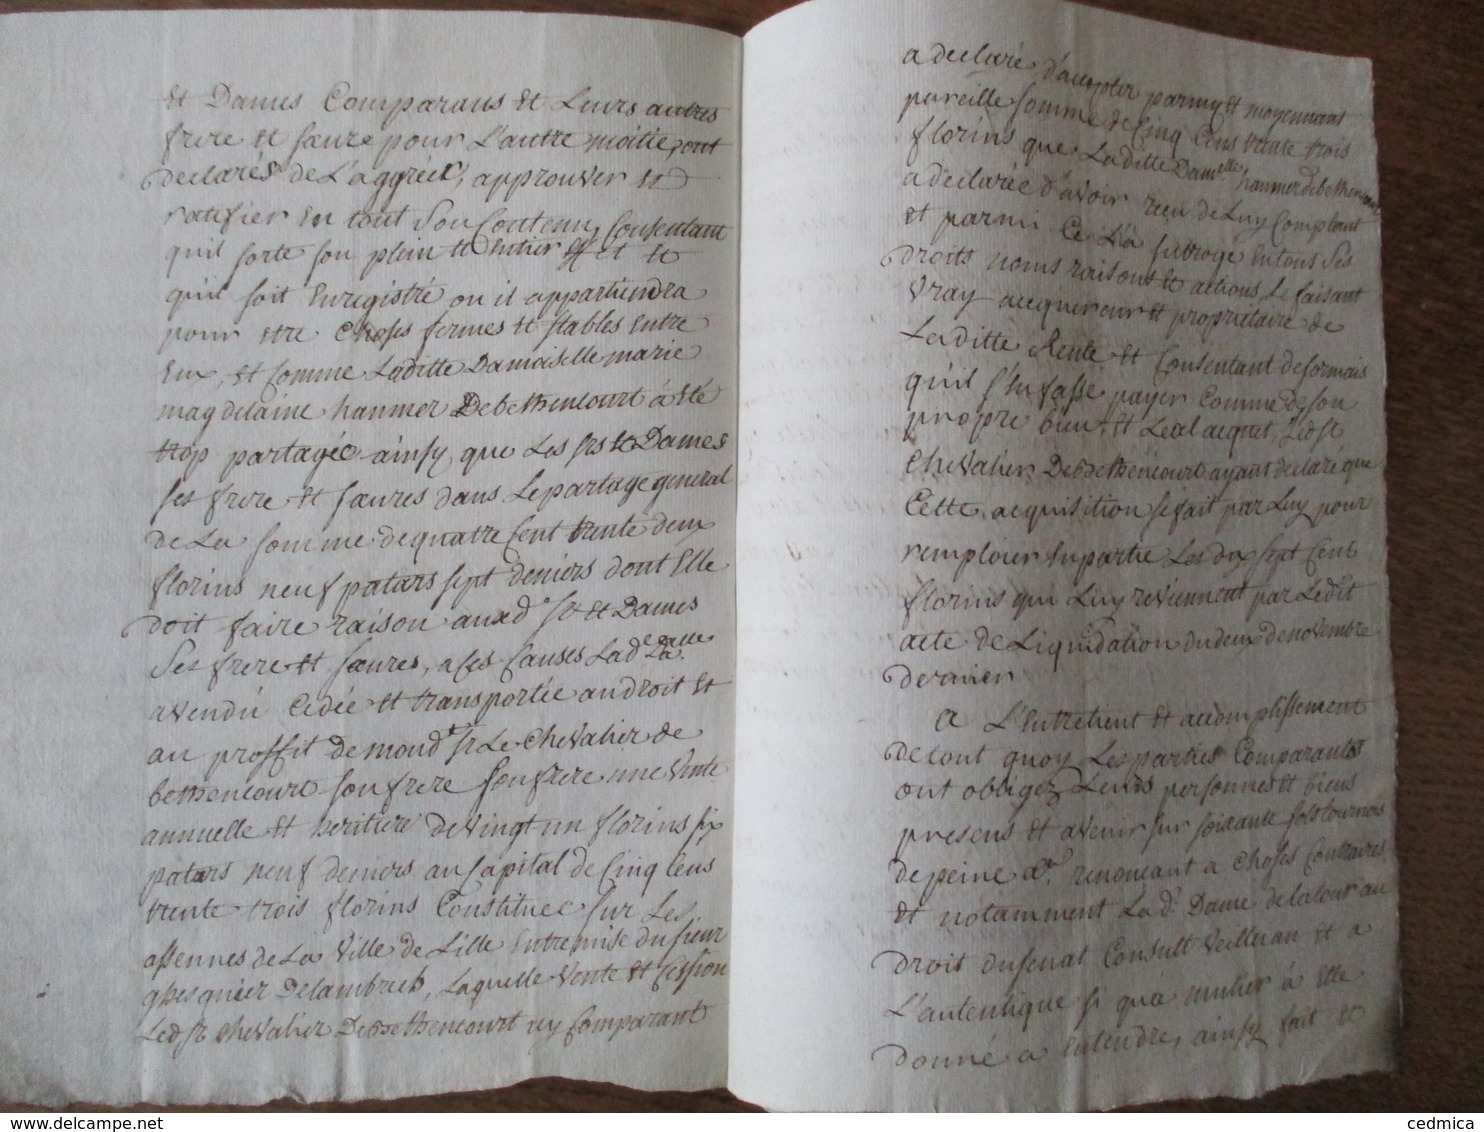 et Dames Comparans et Leurs autres
frere et sœure pour L'autre moitie, ont
declarés de L'aggréér, approuver et
ratifier en tout son Contenu, Consentant
quil sorte son plein et entier effet et
quil soit Enregistré ou il appartiendra
pour etre Choses fermes et stables Entre
Eux, et Comme Laditte Damoiselle marie
magdelaine hanmer Debethencourt à été
trop partagée ainsy que Les srs et Dames
ses frere et sœures dans Le partage general
de La somme de quatre Cent trente deux
florins neuf patars sept deniers dont Elle
doit faire raison auxd. srs et Dames
Ses frere et sœures, a ces Causes Lad.e Dalle
a vendu Cedée et transportée au droit et
au proffit de mond.t sr Le Chevalier de
bethencourt son frere son frere une rente
annuelle et heritiere de vingt un florins six
patars neuf deniers au Capital de Cinq Cens
trente trois florins Constituée sur Les
assennes de La Ville de Lille Entremise du sieur
ghesquier Delambreck, Laquelle Vente et Cession
Led. sr Chevalier Debethencourt icy Comparant
a declaré d'accepter parmy et moyennant
pareille somme de Cinq Cens trente trois
florins que Laditte Damelle hanmer debethencourt
a declarée d'avoir recu de Luy Comptant
et parmi Ce L'a subrogé en tous ses
droits noms raisons et actions, Le faisant
Vray acquereur et proprietaire de
Laditte Rente et Consentant desormais
quil s'en fasse payer Comme de son
propre bien et Leal acquet, Led. sr
Chevalier Debethencourt ayant declaré que
Cette acquisition se fait par Luy pour
remploier en partie Les dix sept Cent
florins qui Luy reviennent par Ledit
acte de Liquidation du deux de novembre
dernier
A L'Entretient et accomplissement
de tout quoy Les parties Comparants
ont obligez Leurs personnes et biens
presens et avenir sur soixante sols tournois
de peine &a. renonceant a Choses Contraires
et notamment La d. Dame de la Cour au
droit du senat Consult Velleian et a
L'autentique si qua mulier à Elle
donné a Entendre, ainsy fait et